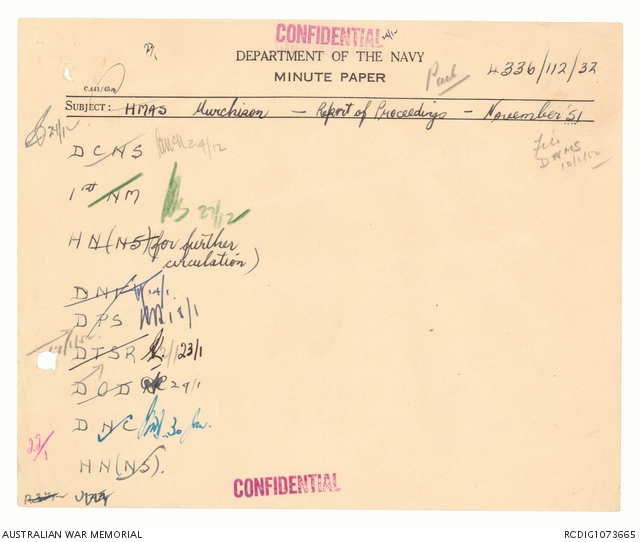 CONFIDENTIAL
DEPARTMENT OF THE NAVY
MINUTE PAPER
4336/112/32
C.441/45
SUBJECT: HMAS Murchison — Report of Proceedings — November '51
24/12
DCNS 24/12
File
10/1/52
1st NM 27/12
HN(NS) (for further
circulation)
14/1
DPS 18/1
DTSR 23/1
DOD 29/1
DNC 30 Jan.
22/1
HN(NS).
CONFIDENTIAL
AUSTRALIAN WAR MEMORIAL
RCDIG1073665